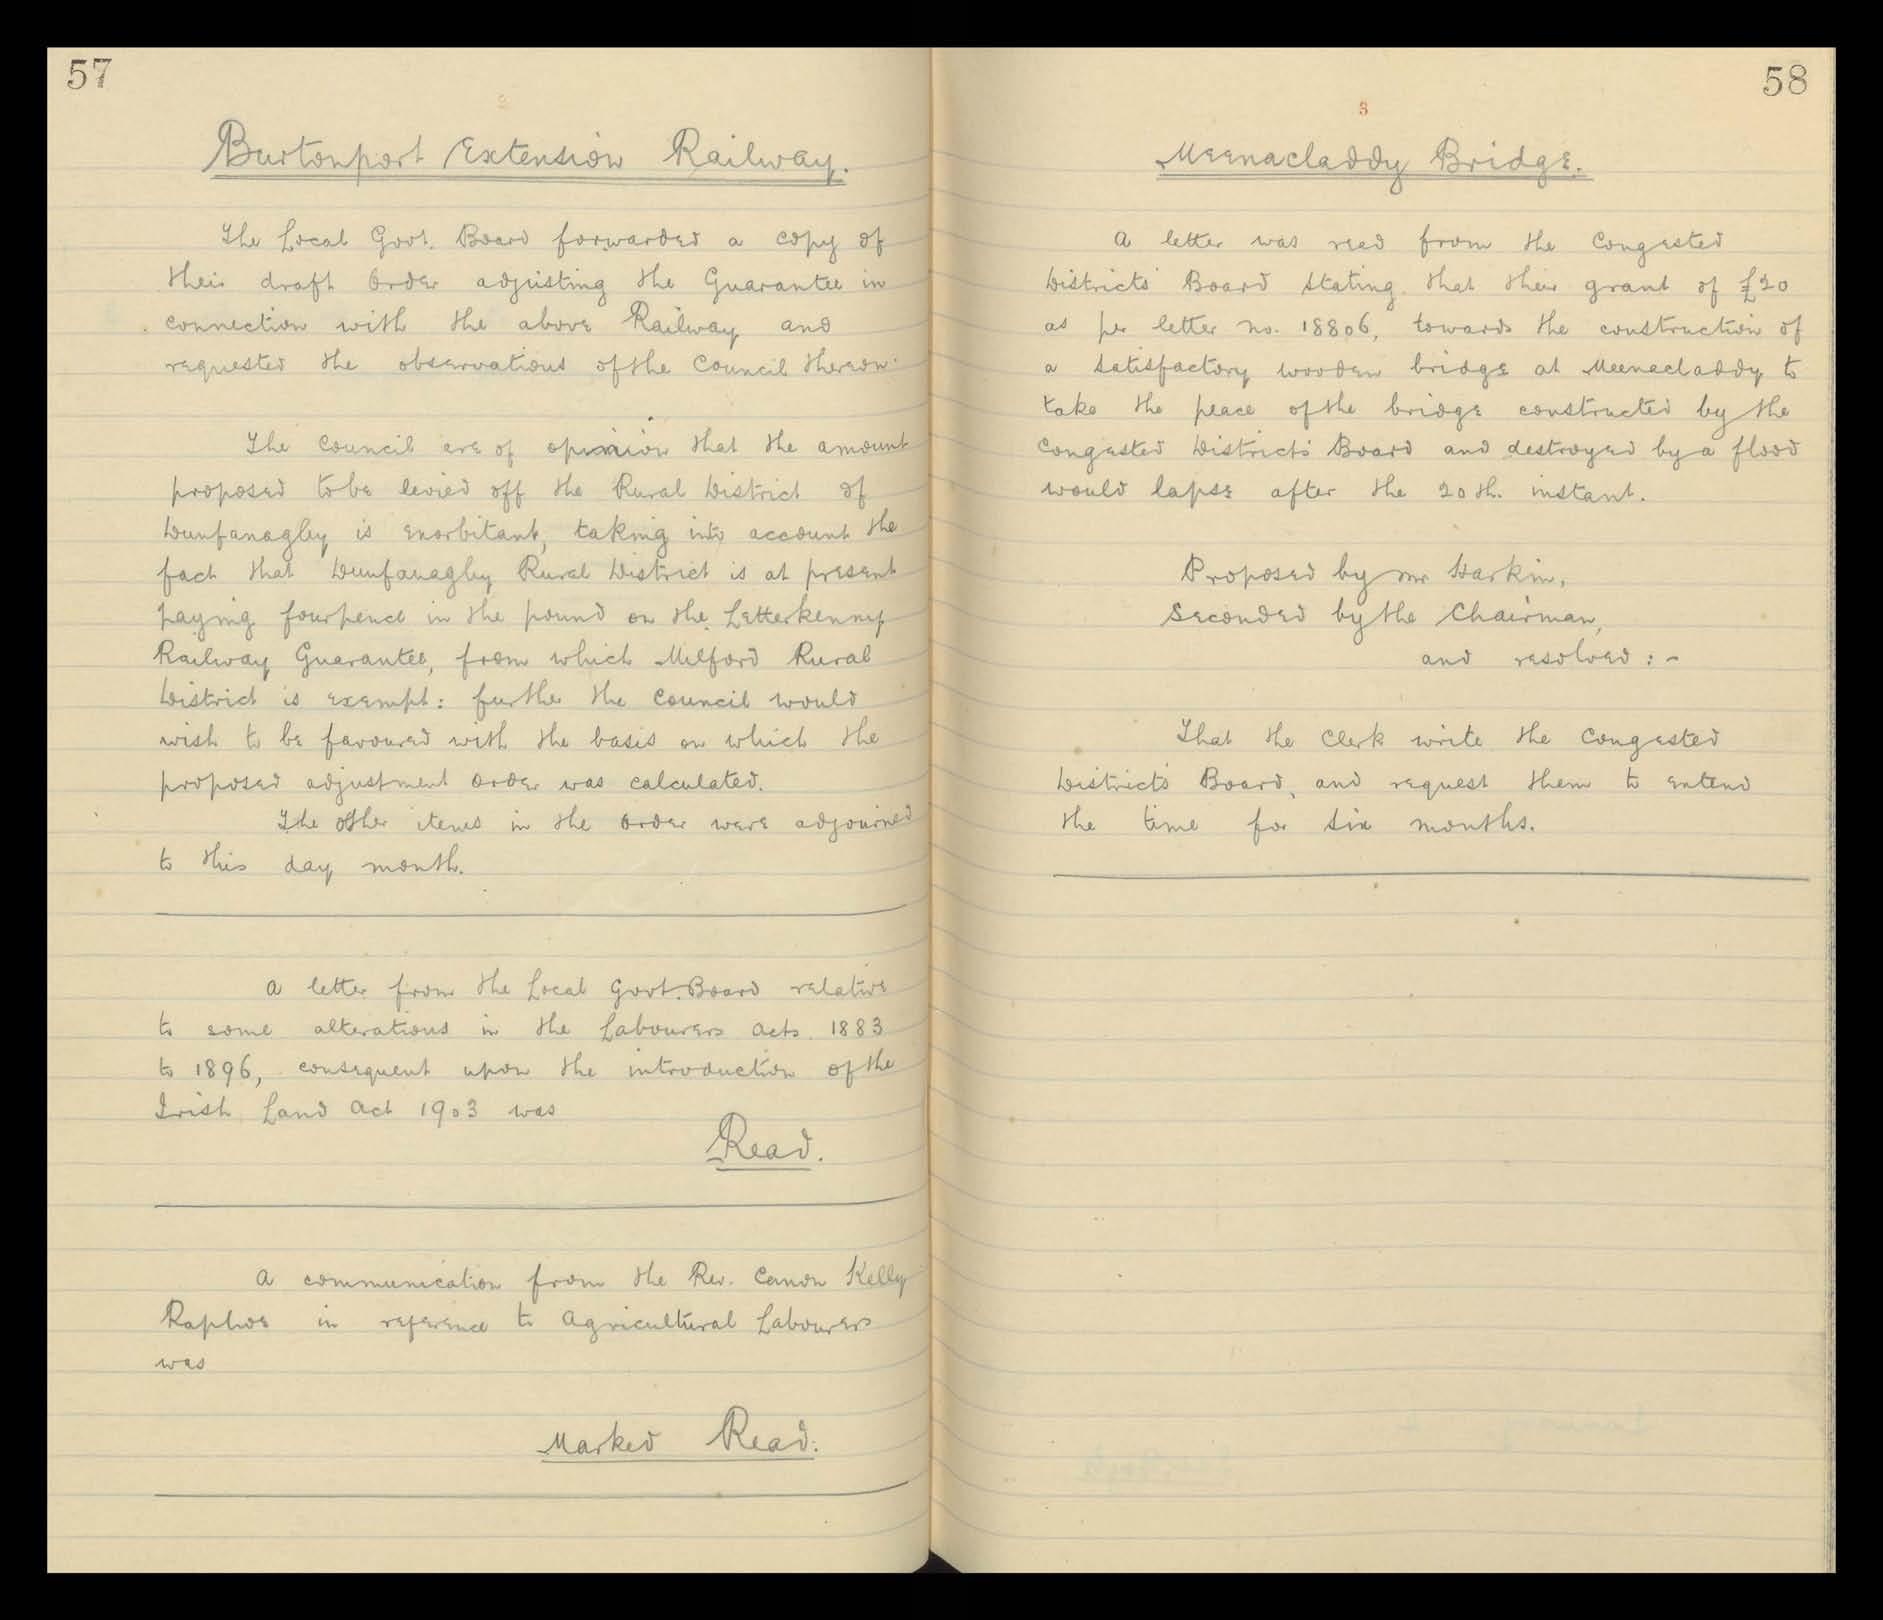 57
Burtonport Extension Railway.
The Local Govt. Board forwarded a copy of
their draft Order adjusting the Guarantee in
connection with the above Railway and
requested the observations of the Council thereon.
The Council are of opinion that the amount
proposed to be levied off the Rural District of
Dunfanaghy is exorbitant, taking into account the
fact that Dunfanaghy Rural District is at present
paying fourpence in the pound on the Letterkenny
Railway Guarantee, from which Milford Rural
District is exempt: further the Council would
wish to be favoured with the basis on which the
proposed adjustment Order was calculated.
The other items in the Order were adjourned
to this day month.
A letter from the Local Govt. Board relative
to some alterations in the Labourers Acts 1883
to 1896, consequent upon the introduction of the
Irish Land Act 1903 was
Read.
A communication from the Rev. Canon Kelly
Raphoe in reference to Agricultural Labourers
was
Marked Read.
58
3
Meenacladdy Bridge.
A letter was read from the Congested
Districts' Board stating that their grant of £20
as per letter no. 18806, towards the construction of
a satisfactory wooden bridge at Meenacladdy to
take the place of the bridge constructed by the
Congested Districts' Board and destroyed by a flood
would lapse after the 20th. instant.
Proposed by Mr Harkin,
Seconded by the Chairman,
and resolved :-
That the Clerk write the Congested
Districts' Board, and request them to extend
the time for six months.